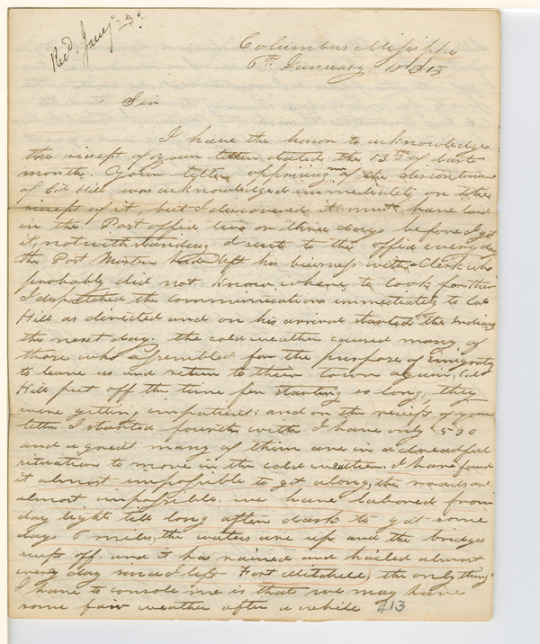 Recd. Jany 23d
Columbus Missippi
6th January 1835
Sir
I have the honor to acknowledge
the receipt of your letter dated the 13th of last
month. Your letter apprising me of the discontinuance
of Col Hill was acknowledged immediately on the
receipt of it, but I discovered it must have laid
in the Post office two or three days before I got
it, notwithstanding I sent to the office every day
the Post Master had left his buisness with a Clerk who
probably did not know where to look for them
I dispatched the communication immediately to Col
Hill as directed and on his arrival started the Indians
the next day. the cold weather caused many of
those who assembled for the purpose of emigrating
to leave us and return to their towns again; Col
Hill put off the time for starting so long, they
were getting impatient; and on the receipt of your
letter I started fourth with I have only 530
and a great many of them are in a dreadful
situation to move in the cold weather. I have found
it almost impossible to get along, the roads are
almost impassible. we have labored from
day light till long after dark to get some
days 6 miles, the waters are up and the bridges
swept off and it has rained and hailed almost
every day since I left Fort Mitchell, the only thing
I have to console me is that we may have
some fair weather after a while
413